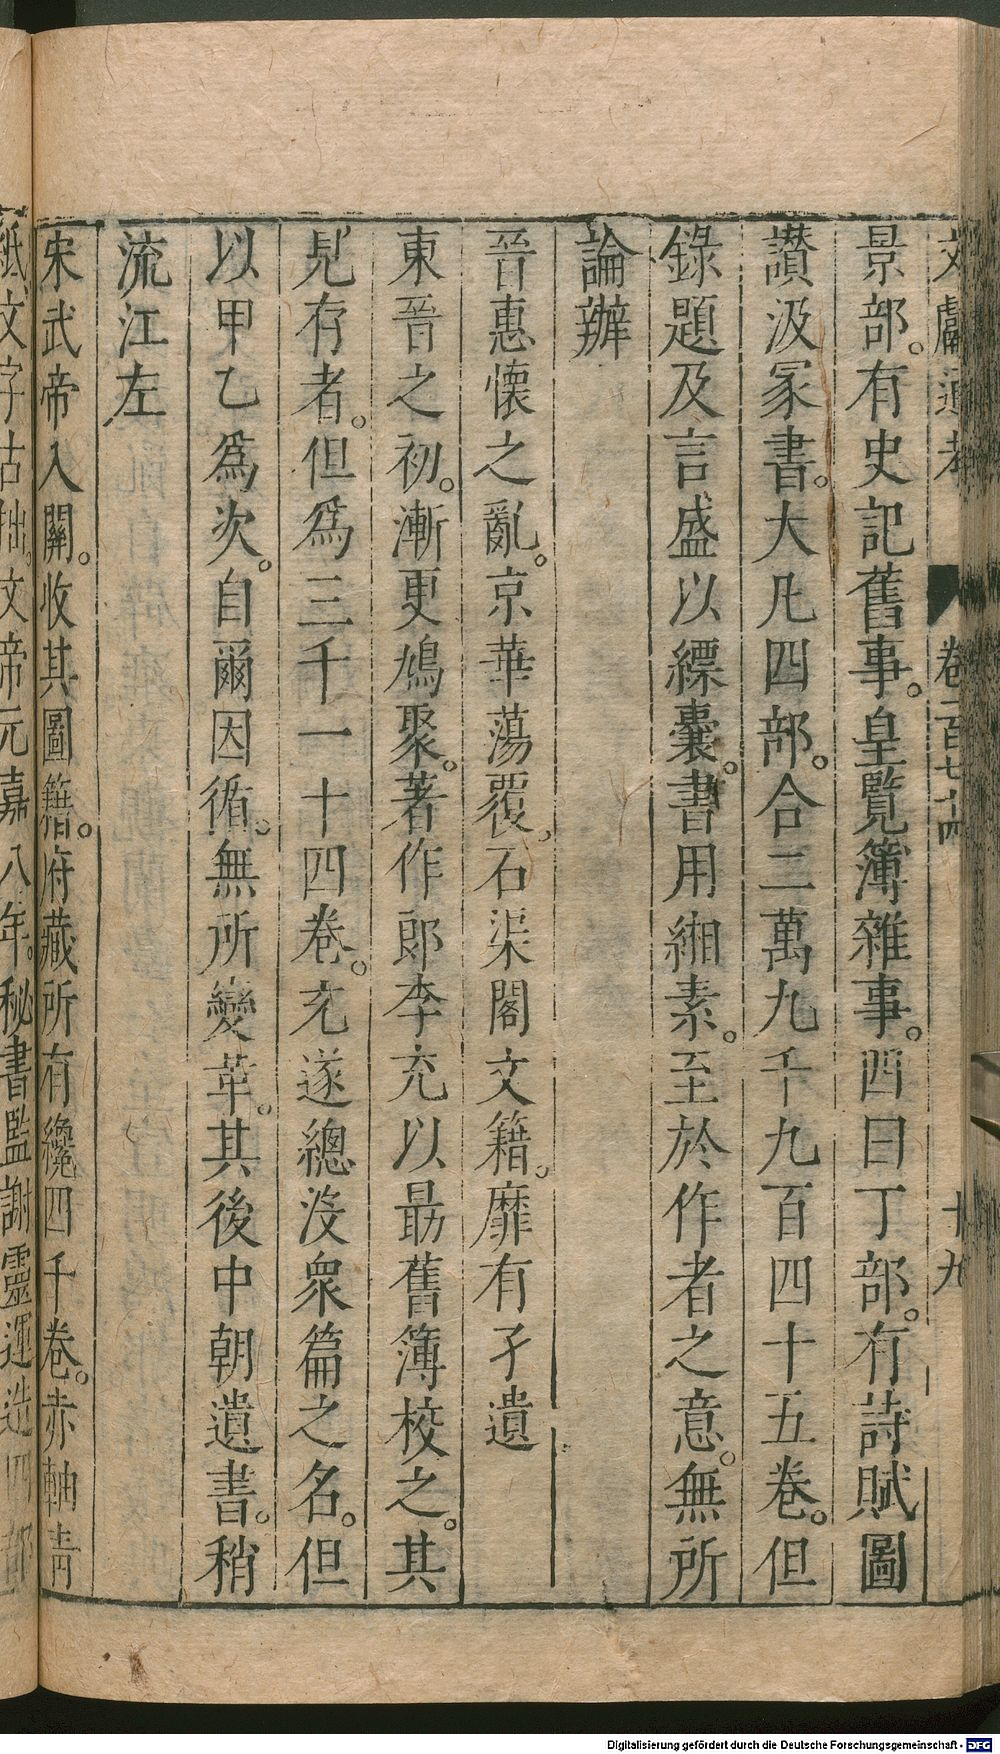 文獻通考 卷一百七十四 十九
景部。有史記舊事。皇覽簿雜事。四曰丁部。有詩賦圖
讚汲冢書。大凡四部。合二萬九千九百四十五卷。但
錄題及言盛以縹囊。書用緗素。至於作者之意。無所
論辯
晉惠懷之亂。京華蕩覆。石渠閣文籍。靡有孑遺
東晉之初。漸更鳩聚。著作郎李充以最舊簿校之。其
見存者。但爲三千一十四卷。充遂總沒衆篇之名。但
以甲乙爲次。自爾因循。無所變革。其後中朝遺書。稍
流江左
宋武帝入關。收其圖籍。府藏所有纔四千卷。赤軸青
紙文字古拙。文帝元嘉八年。秘書監謝靈運造四部
Digitalisierung gefördert durch die Deutsche Forschungsgemeinschaft - DFG